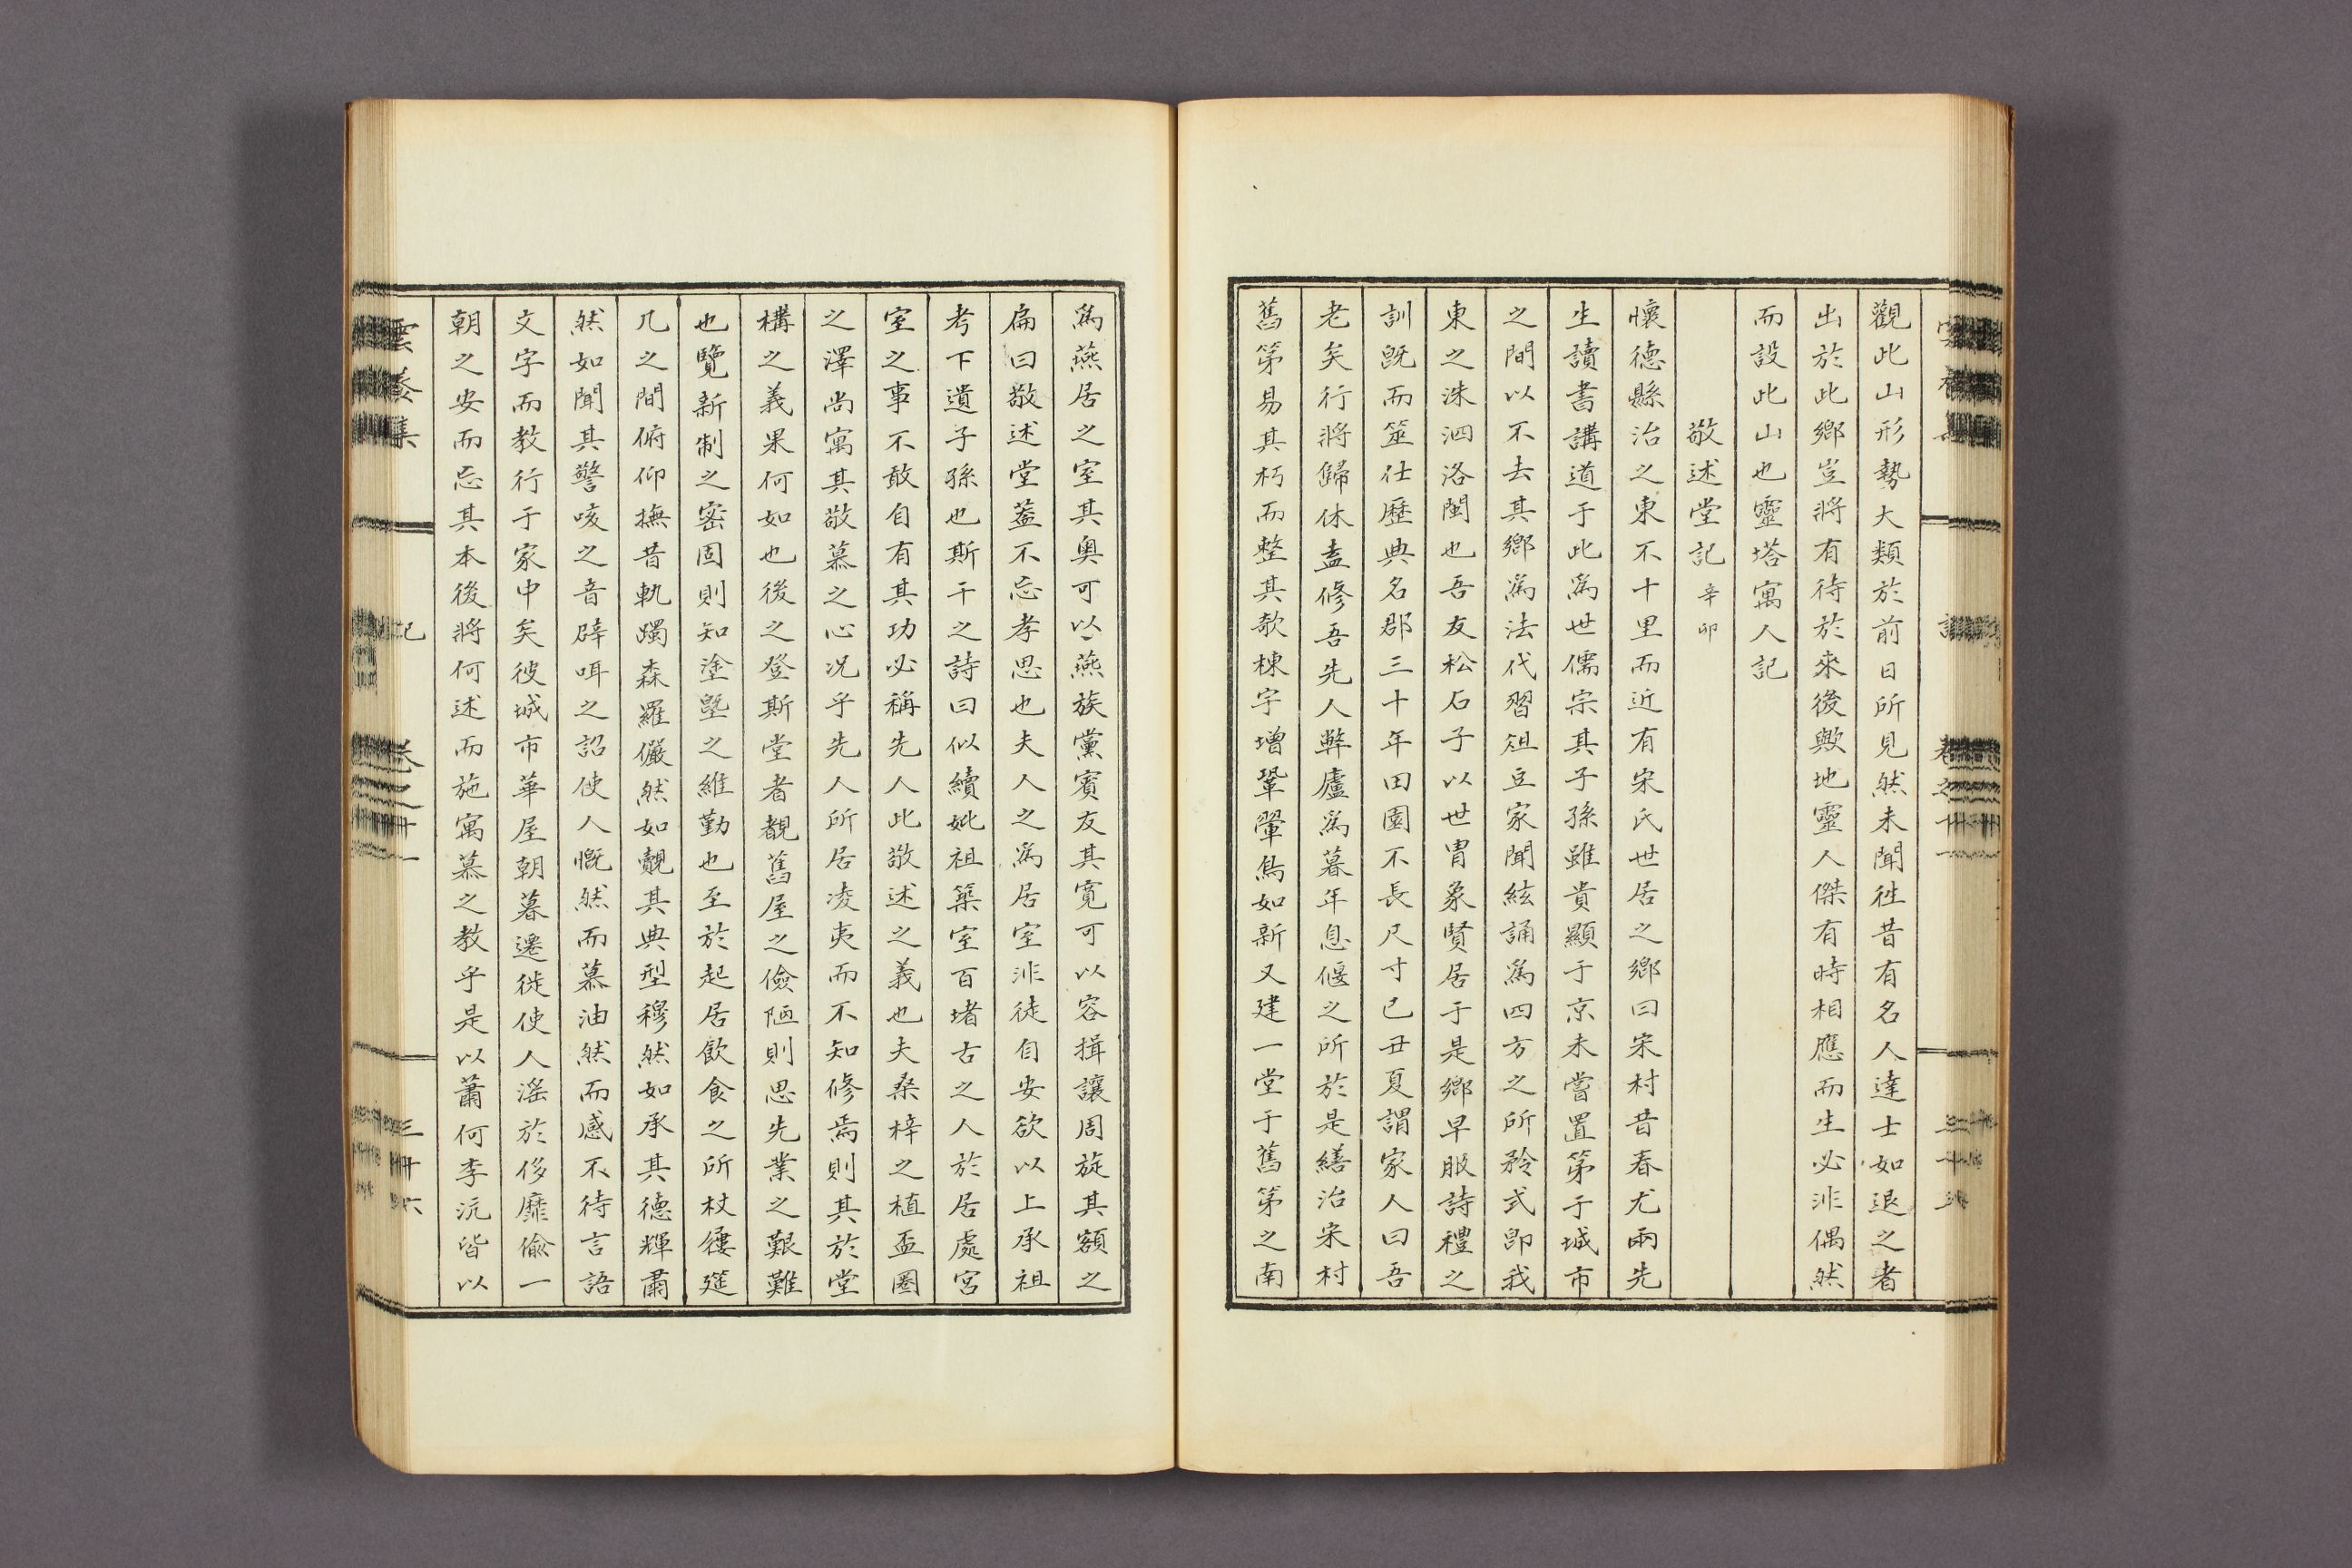 觀此山形勢大類於前日所見然未聞徃昔有名人達士如退之者
出於此鄉豈將有待於來後歟地靈人傑有時相應而生必非偶然
而設此山也靈塔寓人記
敬述堂記 辛卯
懷德縣治之東不十里而近有宋氏世居之鄉曰宋村昔春尤兩先
生讀書講道于此爲世儒宗其子孫雖貴顯于京未嘗置第于城市
之間以不去其鄉爲法代習俎豆家聞絃誦爲四方之所矜式卽我
東之洙泗洛閩也吾友松石子以世胄象賢居于是鄉早服詩禮之
訓旣而筮仕歷典名郡三十年田園不長尺寸已丑夏謂家人曰吾
老矣行將歸休盍修吾先人弊廬爲暮年息偃之所於是繕治宋村
舊第易其朽而整其欹棟宇增鞏翬鳥如新又建一堂于舊第之南
爲燕居之室其奥可以燕族黨賓友其寬可以容揖讓周旋其額之
扁曰敬述堂葢不忘孝思也夫人之爲居室非徒自安欲以上承祖
考下遺子孫也斯干之詩曰似續妣祖築室百堵古之人於居處宮
室之事不敢自有其功必稱先人此敬述之義也夫桑梓之植盃圈
之澤尚寓其敬慕之心况乎先人所居凌夷而不知修焉則其於堂
構之義果何如也後之登斯堂者覩舊屋之儉陋則思先業之艱難
也覽新制之密固則知塗墍之維勤也至於起居飮食之所杖屨筵
几之間俯仰撫昔軌躅森羅儼然如覿其典型穆然如承其德輝肅
然如聞其警咳之音辟咡之詔使人慨然而慕油然而感不待言語
文字而敎行于家中矣彼城市華屋朝暮遷徙使人滛於侈靡偸一
朝之安而忘其本後將何述而施寓慕之敎乎是以蕭何李沆皆以
雲養集 記 卷之十一 三十六